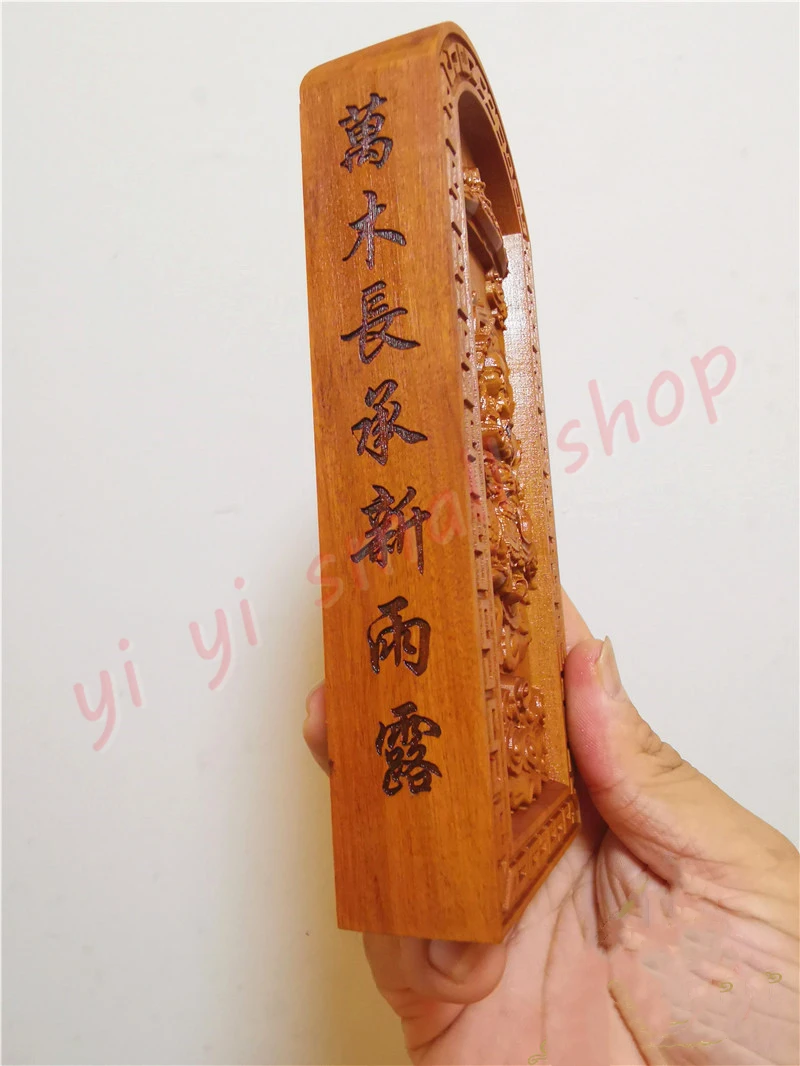 萬木長承新雨露
yi yi small shop